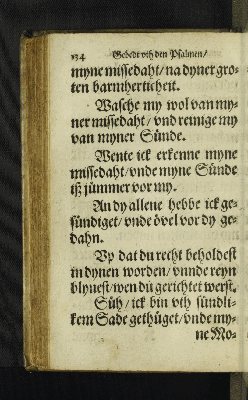 134 Gebedt vth den Psalmen/
myne missedaht/ na dyner gro-
ten barmherticheit.
Wasche my wol van my-
ner missedaht/ vnd reinige my
van myner Sünde.
Wente ick erkenne myne
missedaht/ vnde myne Sünde
iß jümmer vor my.
An dy allene hebbe ick ge-
sündiget/ vnde övel vor dy ge-
dahn.
Vp dat du recht beholdest
in dynen worden/ vnnde reyn
blyuest/ wen dü gerichtet werst.
Süh/ ick bin vth sündli-
kem Sade gethüget/ vnde my-
ne Mo-